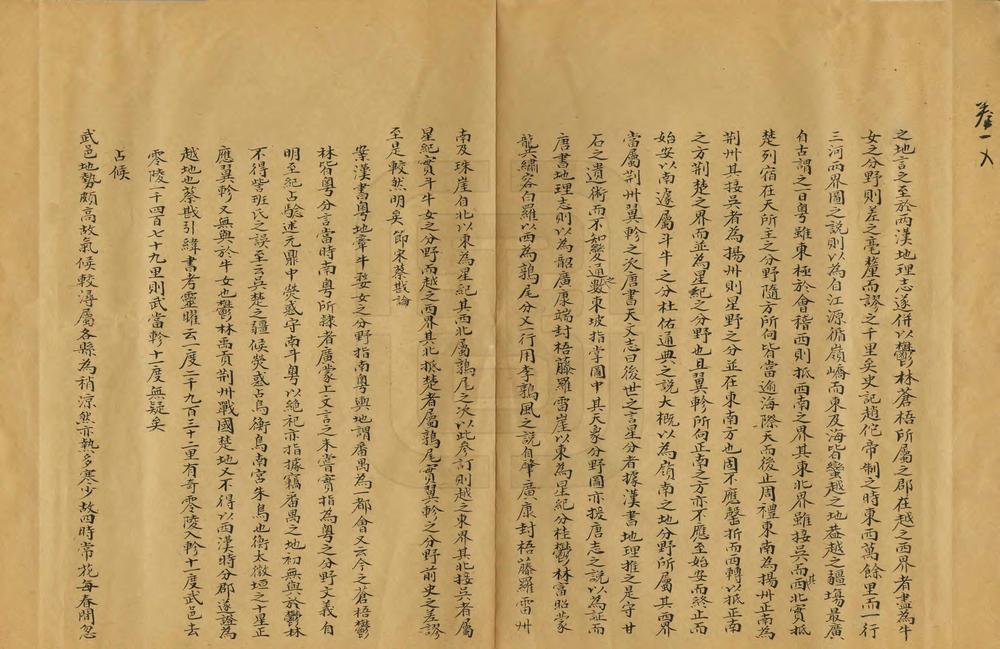 卷一
之地言之至於兩漢地理志遂併以鬱林蒼梧所屬之郡在越之西界者盡為牛
女之分野則差之毫釐而謬之千里矣史記趙佗帝制之時東西萬餘里而一行
三河兩界圖之說則以為自江源循嶺嶠而東及海皆蠻越之地蓋越之疆場最廣
自古謂之百粵雖東極於會稽西則抵西南之界其東北界雖接吳而西北實抵
楚列宿在天所主之分野隨方所向皆當逾海際天而後止周禮東南為揚州正南為
荆州其接吳者為揚州則星野之分並在東南方也固不應罄折而西轉以抵正南
之方荆楚之界而並為星紀之分野也且翼軫所向正南之方亦不應至始安而終止而
始安以南遽屬斗牛之分杜佑通典之說大概以為嶺南之地分野所屬其西界
當屬荆州翼軫之次唐書天文志曰後世之言星分者據漢書地理推之是守甘
石之遺術而不知變通之數東坡指掌圖中其天象分野圖亦援唐志之說以為証而
唐書地理志則以為韶廣康端封梧藤羅雷崖以東為星紀分桂鬱林富昭蒙
龔繡容白羅以西為鶉尾分又一行用李鶉風之說自肇廣康封梧藤羅雷州
南及珠崖自北以東為星紀其西北屬鶉尾之次以此參訂則越之東界其北接吳者屬
星紀實斗牛女之分野而越之西界其北抵楚者屬鶉尾實翼軫之分野前史之差謬
至是較然明矣 節宋蔡戡論
案漢書粵地牽牛婺女之分野指南粵輿地謂番禺為一都會又云今之蒼梧鬱
林皆粵分言當時南粵所隸者廣蒙上文言之未嘗實指為粵之分野文義自
明至紀占驗述元鼎中熒惑守南斗粵以絶祀亦指據竊番禺之地初無與於鬱林
不得訾班氏之誤至云吳楚之疆候熒惑占鳥衡鳥南宮朱鳥也衡太微垣之十星正
應翼軫又無與於牛女也鬱林禹貢荆州戰國楚地又不得以西漢時分郡遂證為
越地也蔡戡引緯書考靈曜云一度二千九百三十二里有奇零陵入軫十一度武邑去
零陵一千四百七十九里則武當軫十一度無疑矣
占候
武邑地勢頗高故氣候較潯屬各縣為稍涼然亦熱多寒少故四時常花每春開忽